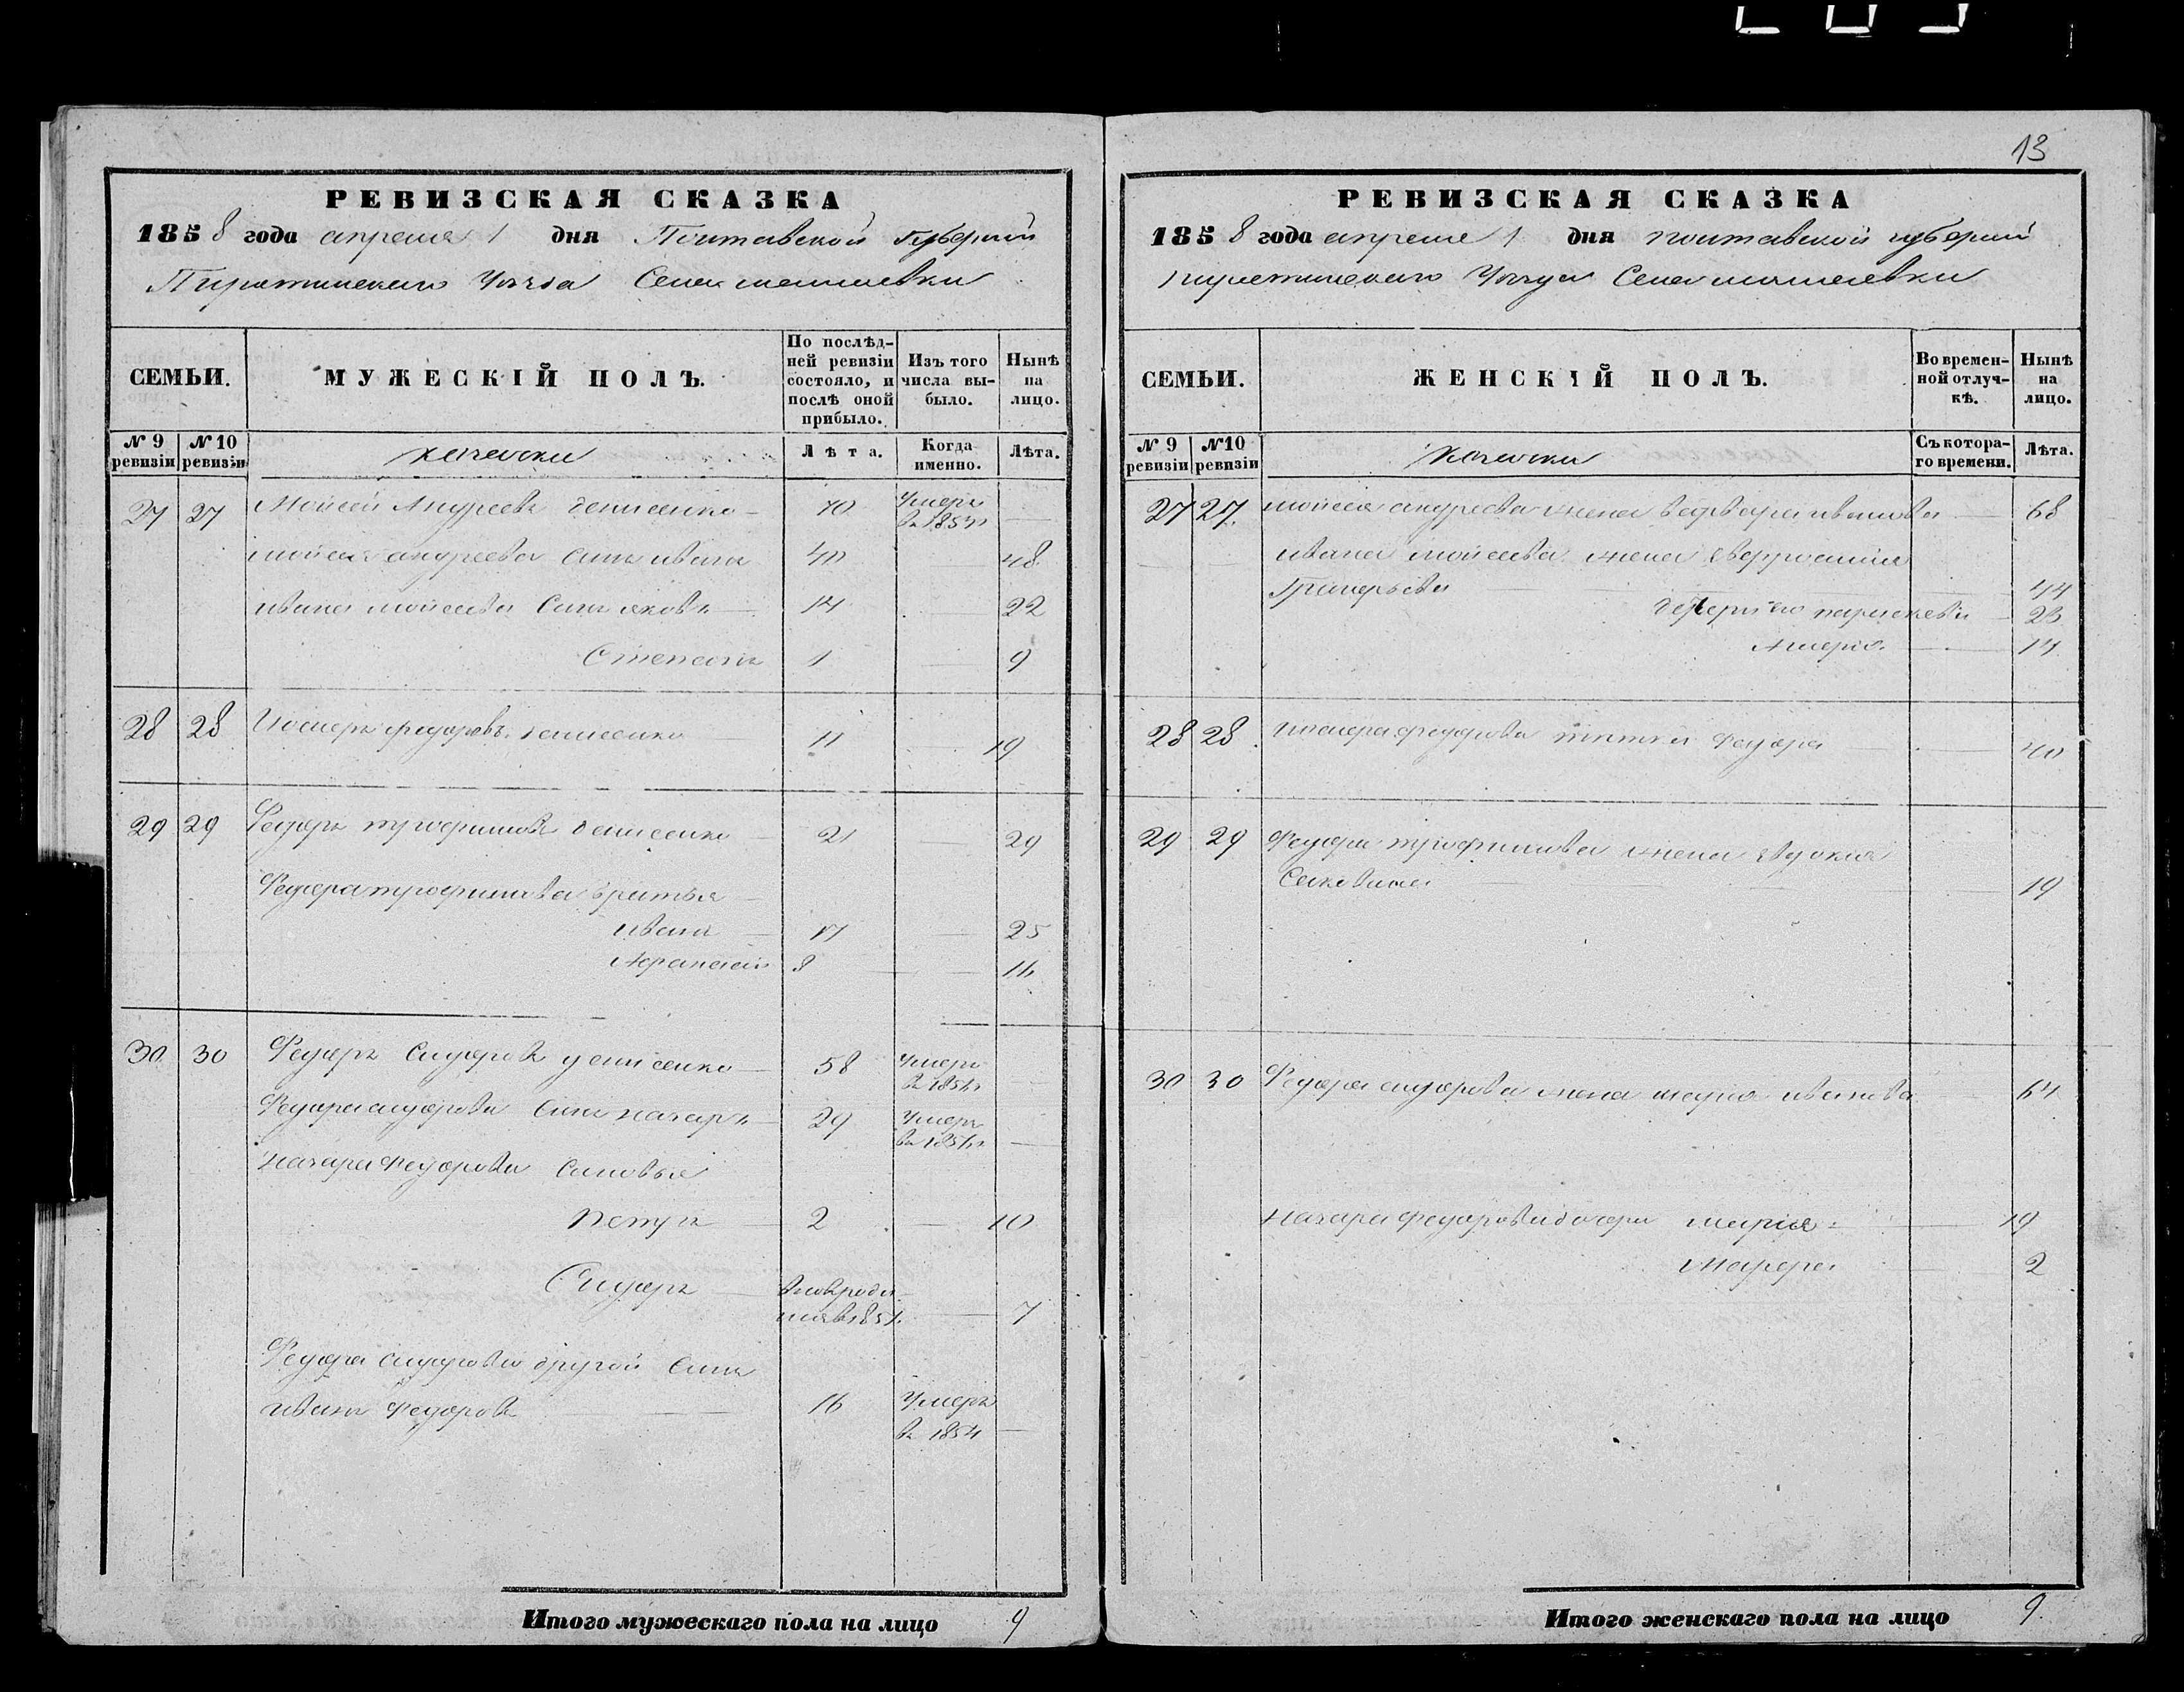 13
РЕВИЗСКАЯ СКАЗКА
1858 года апреля 1 дня Полтавской Губернии
Пирятинского Уезда Села
СЕМЬИ.
МУЖЕСКІЙ ПОЛЪ.
По послѣдней ревизіи состояло, и послѣ оной прибыло.
Изъ того числа выбыло.
Нынѣ на лицо.
№ 9 ревизіи
№ 10 ревизіи
козаки
Лѣта.
Когда именно.
Лѣта.
27 27 Мойсей Андреевъ Денисенко 70 Умеръ въ 1854
мойсея андреева сынъ иванъ 40 48
ивана мойсеева сынъ яковъ 14 22
Степанъ 1 9
28 28 федоровъ денисенко 11 19
29 29 Федоръ трофимовъ денисенко 21 29
Федора трофимова братья
иванъ 17 25
Афанасий 8 16
30 30 Федоръ Сидоровъ денисенко 58 Умеръ
Федора сидорова сынъ назаръ 29 Умеръ
назара федорова сыновья
петръ 2 10
Сидоръ 7
Федора сидорова другой сынъ
иванъ федоровъ 16 Умеръ
въ 1854
Итого мужескаго пола на лицо 9
РЕВИЗСКАЯ СКАЗКА
1858 года апреля 1 дня полтавской губернии
пирятинского Уезда Села
СЕМЬИ.
ЖЕНСКІЙ ПОЛЪ.
Во временной отлучкѣ.
Нынѣ на лицо.
№ 9 ревизіи
№ 10 ревизіи
козачки
Съ котораго времени.
Лѣта.
27 27 мойсея андреева жена варвара иванова 68
ивана мойсеева жена
Григорьева 44
дочери его параскева 23
Марія 14
28 28 федорова тетка 40
29 29 Федора трофимова жена евдокия
Саковина 19
30 30 Федора сидорова жена марія иванова 64
назара федорова дочери марія 19
2
Итого женскаго пола на лицо 9.